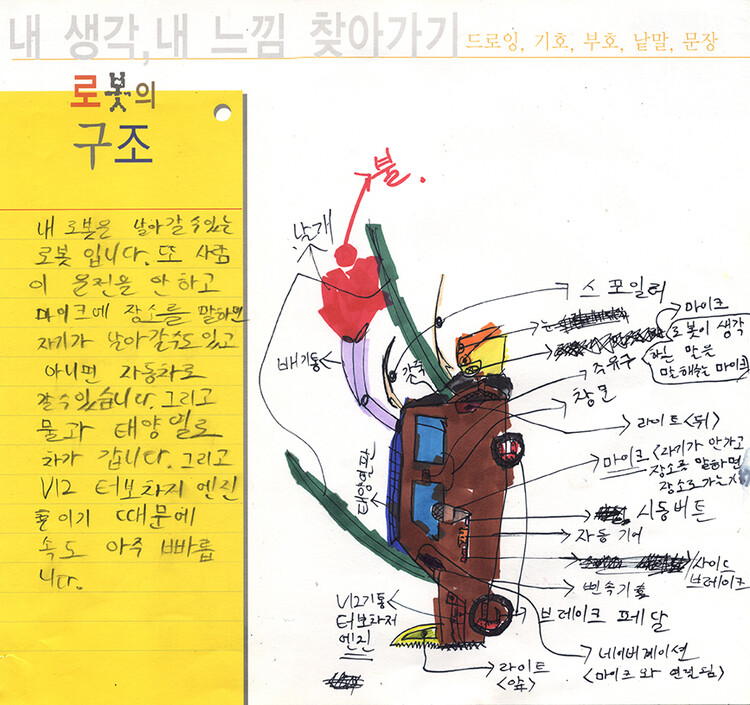 내 생각,내 느낌 찾아가기
드로잉, 기호, 부호, 낱말, 문장
로봇의
구조
내 로봇은 날아갈 수 있는
로봇 입니다. 또 사람
이 운전을 안 하고
마이크에 장소를 말하면
자기가 날아갈수도 있고
아니면 자동차로
갈 수 있습니다. 그리고
물과 태양열로
차가 갑니다. 그리고
V12 터보차지 엔진
이기 때문에
속도 아주 빠릅
니다.
불.
날개
스포일러
눈
마이크
로봇이 생각
하는 말을
말해주는 마이크
주유구
창문
배기통
라이트<뒤>
마이크
<자기가 안가고
장소를 말하면
장소로 가는거>
태양열판
시동버튼
자동 기어
사이드
브레이크
변속기
V12기통
터보차저
엔진
브레이크 페달
네이버게이션
<마이크와 연결됨>
라이트
<앞>